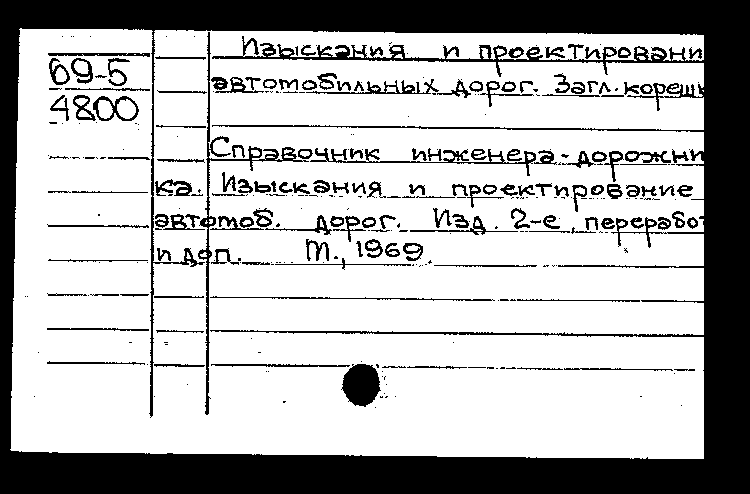 Изыскания и проектировани
69-5
автомобильных дорог. Загл. кореш
4800
Справочник инженера-дорожни
ка. Изыскания и проектирование
автомоб. дорог. Изд. 2-е, переработ
и доп. М., 1969.